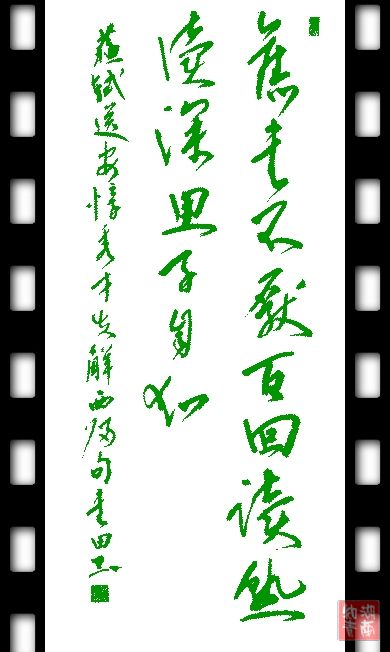 舊書不厭百回讀熟
讀深思子自知
蘇軾送安惇秀才失解西歸句書田